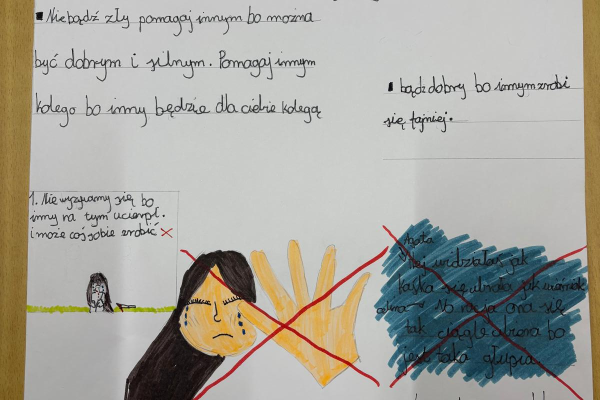 Nie bądź zły pomagaj innym bo można
być dobrym i silnym. Pomagaj innym
kolego bo inny będzie dla ciebie kolegą
bądź dobry bo innym zrobi
się fajniej.
1. Nie wyzywamy się bo
inny na tym ucierpi.
i może coś sobie zrobić
Hej widziałaś jak
Kaśka się ubrała jak
No racja ona się
tak ciągle ubiera bo
jest taka głupia